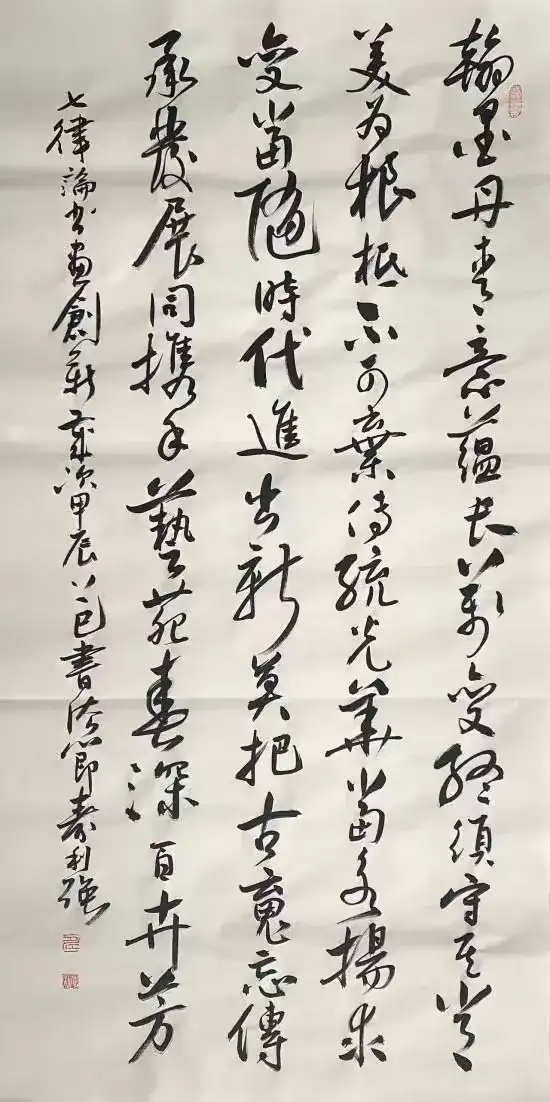 翰墨丹青意蘊長萬變終須守其常
美为根柢不可棄傳統光華當揚求
變當隨時代進出新莫把古魂忘傳
承發展同攜手藝苑春深百卉芳
七律論书畫創新歲次甲辰書法節壽利強